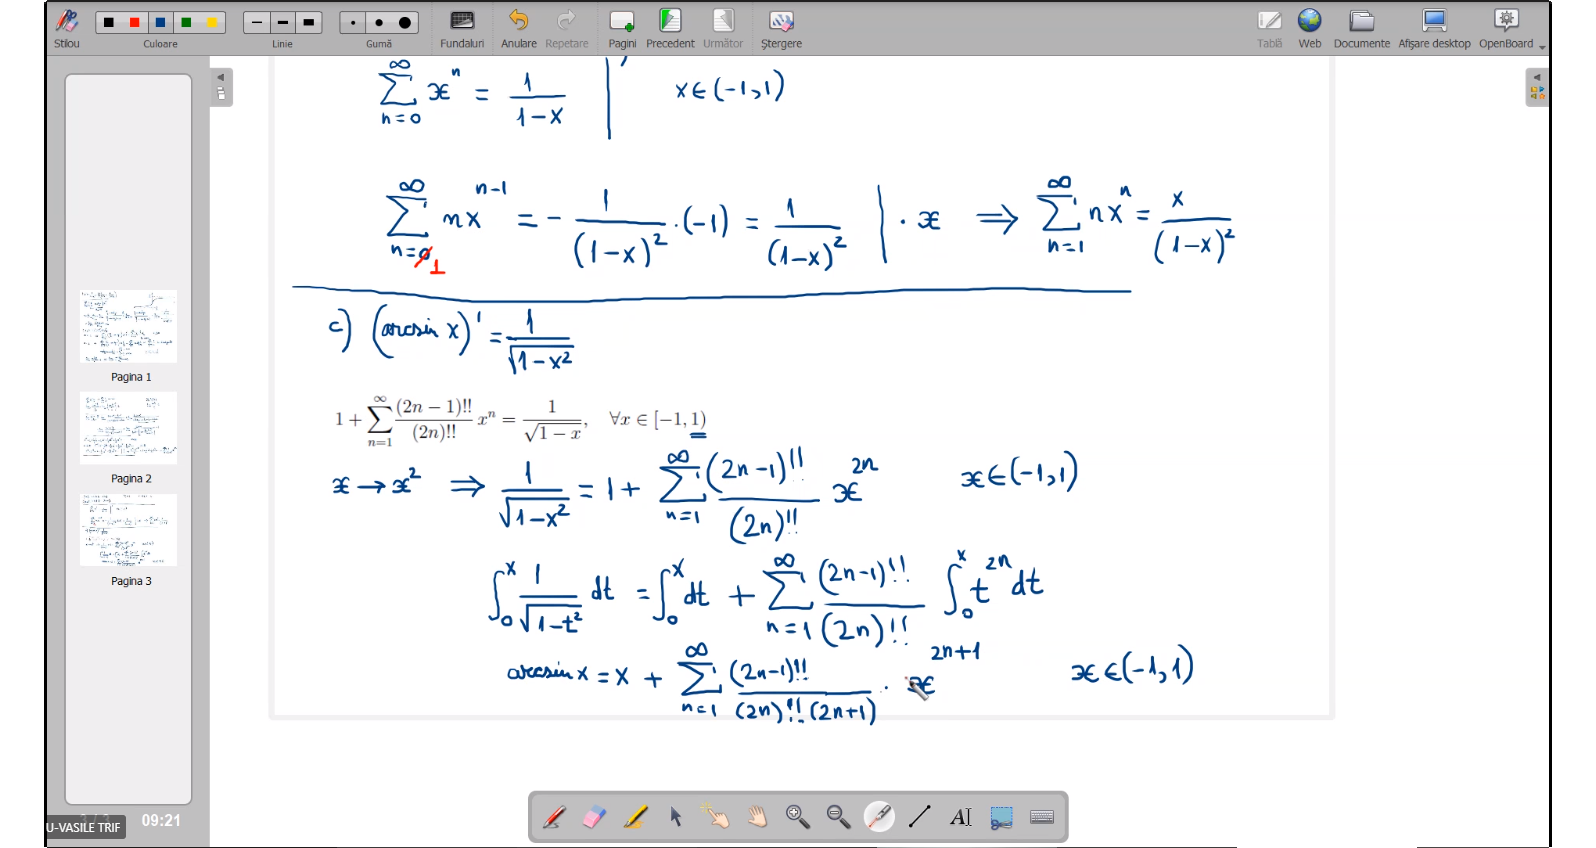 Stilou Culoare Linie Gumă Fundaluri Anulare Repetare Pagini Precedent Următor Ștergere Tablă Web Documente Afişare desktop OpenBoard
∑_{n=0}^{∞} x^n = 1/(1-x) |' x∈(-1,1)
∑_{n=0̸ 1}^{∞} nx^{n-1} = - 1/(1-x)^2 · (-1) = 1/(1-x)^2 | · x ⟹ ∑_{n=1}^{∞} nx^n = x/(1-x)^2
c) (arcsin x)' = 1/√(1-x^2)
1 + ∑_{n=1}^{∞} (2n − 1)!!/(2n)!! x^n = 1/√(1 − x), ∀x ∈ [−1, 1)
x → x^2 ⟹ 1/√(1-x^2) = 1 + ∑_{n=1}^{∞} (2n-1)!!/(2n)!! x^{2n} x∈(-1,1)
∫_0^x 1/√(1-t^2) dt = ∫_0^x dt + ∑_{n=1}^{∞} (2n-1)!!/(2n)!! ∫_0^x t^{2n} dt
arcsin x = x + ∑_{n=1}^{∞} (2n-1)!!/((2n)!!(2n+1)) · x^{2n+1} x∈(-1,1)
Pagina 1
Pagina 2
Pagina 3
09:21
U-VASILE TRIF